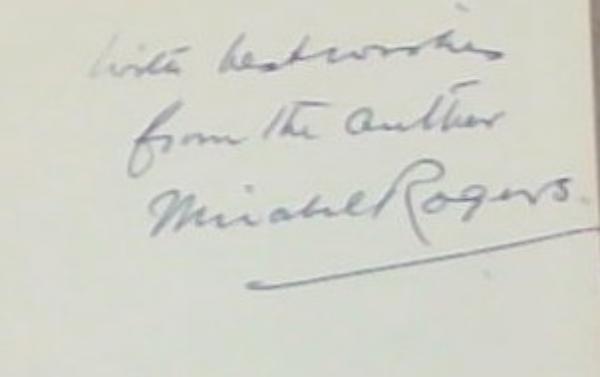 with best wishes
from the author
Mirabel Rogers.